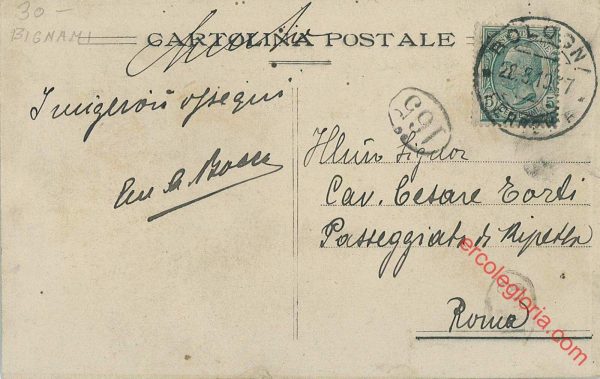 30-
BIGNAMI
CARTOLINA POSTALE
BOLOGN
FERROVIA
I migliori ossequi
165
Illmo Signor
Cav. Cesare Torti
Passeggiata di Ripetta
Roma
ercolegloria.com